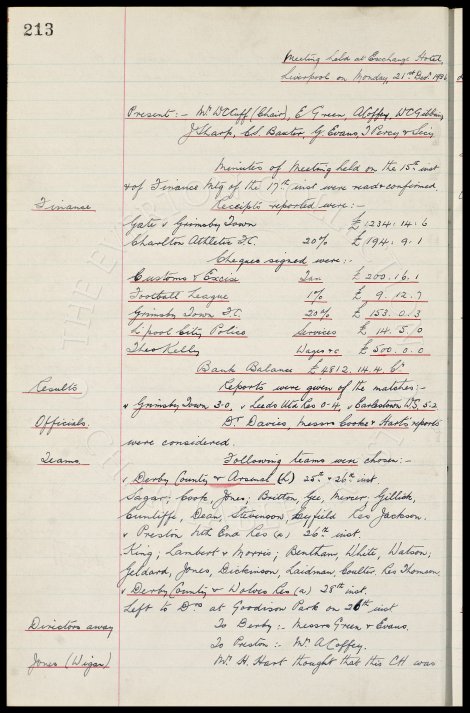 213
Meeting held at Exchange Hotel,
Liverpool on Monday, 21st Decr 1936
Present :- Mr. W.C. Cuff (Chair), E. Green, A. Coffey, W.C. Gibbins
J. Sharp, C.S. Baxter, G. Evans, T. Percy & Secy.
Minutes of Meeting held on the 15th inst
& of Finance Mtg of the 17th inst were read & confirmed.
Finance Receipts reported were :-
Gate v Grimsby Town £ 1234. 14. 6
Charlton Athletic F.C. 20% £ 194. 9. 1
Cheques signed were :-
Customs & Excise Tax £ 200. 16. 1
Football League 1% £ 9. 12. 7
Grimsby Town F.C. 20% £ 153. 0. 3
L'pool City Police Services £ 14. 5. 0
Theo Kelly Wages &c £ 500. 0. 0
Bank Balance £4812. 14. 4.
Results Reports were given of the matches :-
v Grimsby Town 3-0, v Leeds Utd Res 0-4, v Earlestown W.S. 5-2
Officials. Dr Davies, Messrs Cooke & Hart's reports
were considered.
Teams. Following teams were chosen :-
v Derby County & Arsenal (h) 25th & 26th inst
Sagar; Cook, Jones; Britton, Gee, Mercer, Gillick,
Cunliffe, Dean, Stevenson, Leyfield Res Jackson.
v Preston Nth End Res (a) 26th inst.
King; Lambert & Morris; Bentham, White, Watson,
Geldard, Jones, Dickinson, Laidman, Coulter. Res Thomson
v Derby County & Wolves Res (a) 28th inst.
Left to Drs at Goodison Park on 26th inst
Directors away To Derby :- Messrs Green & Evans.
To Preston :- Mr. A. Coffey.
Jones (Wigan) Mr. H. Hart thought that this CH was